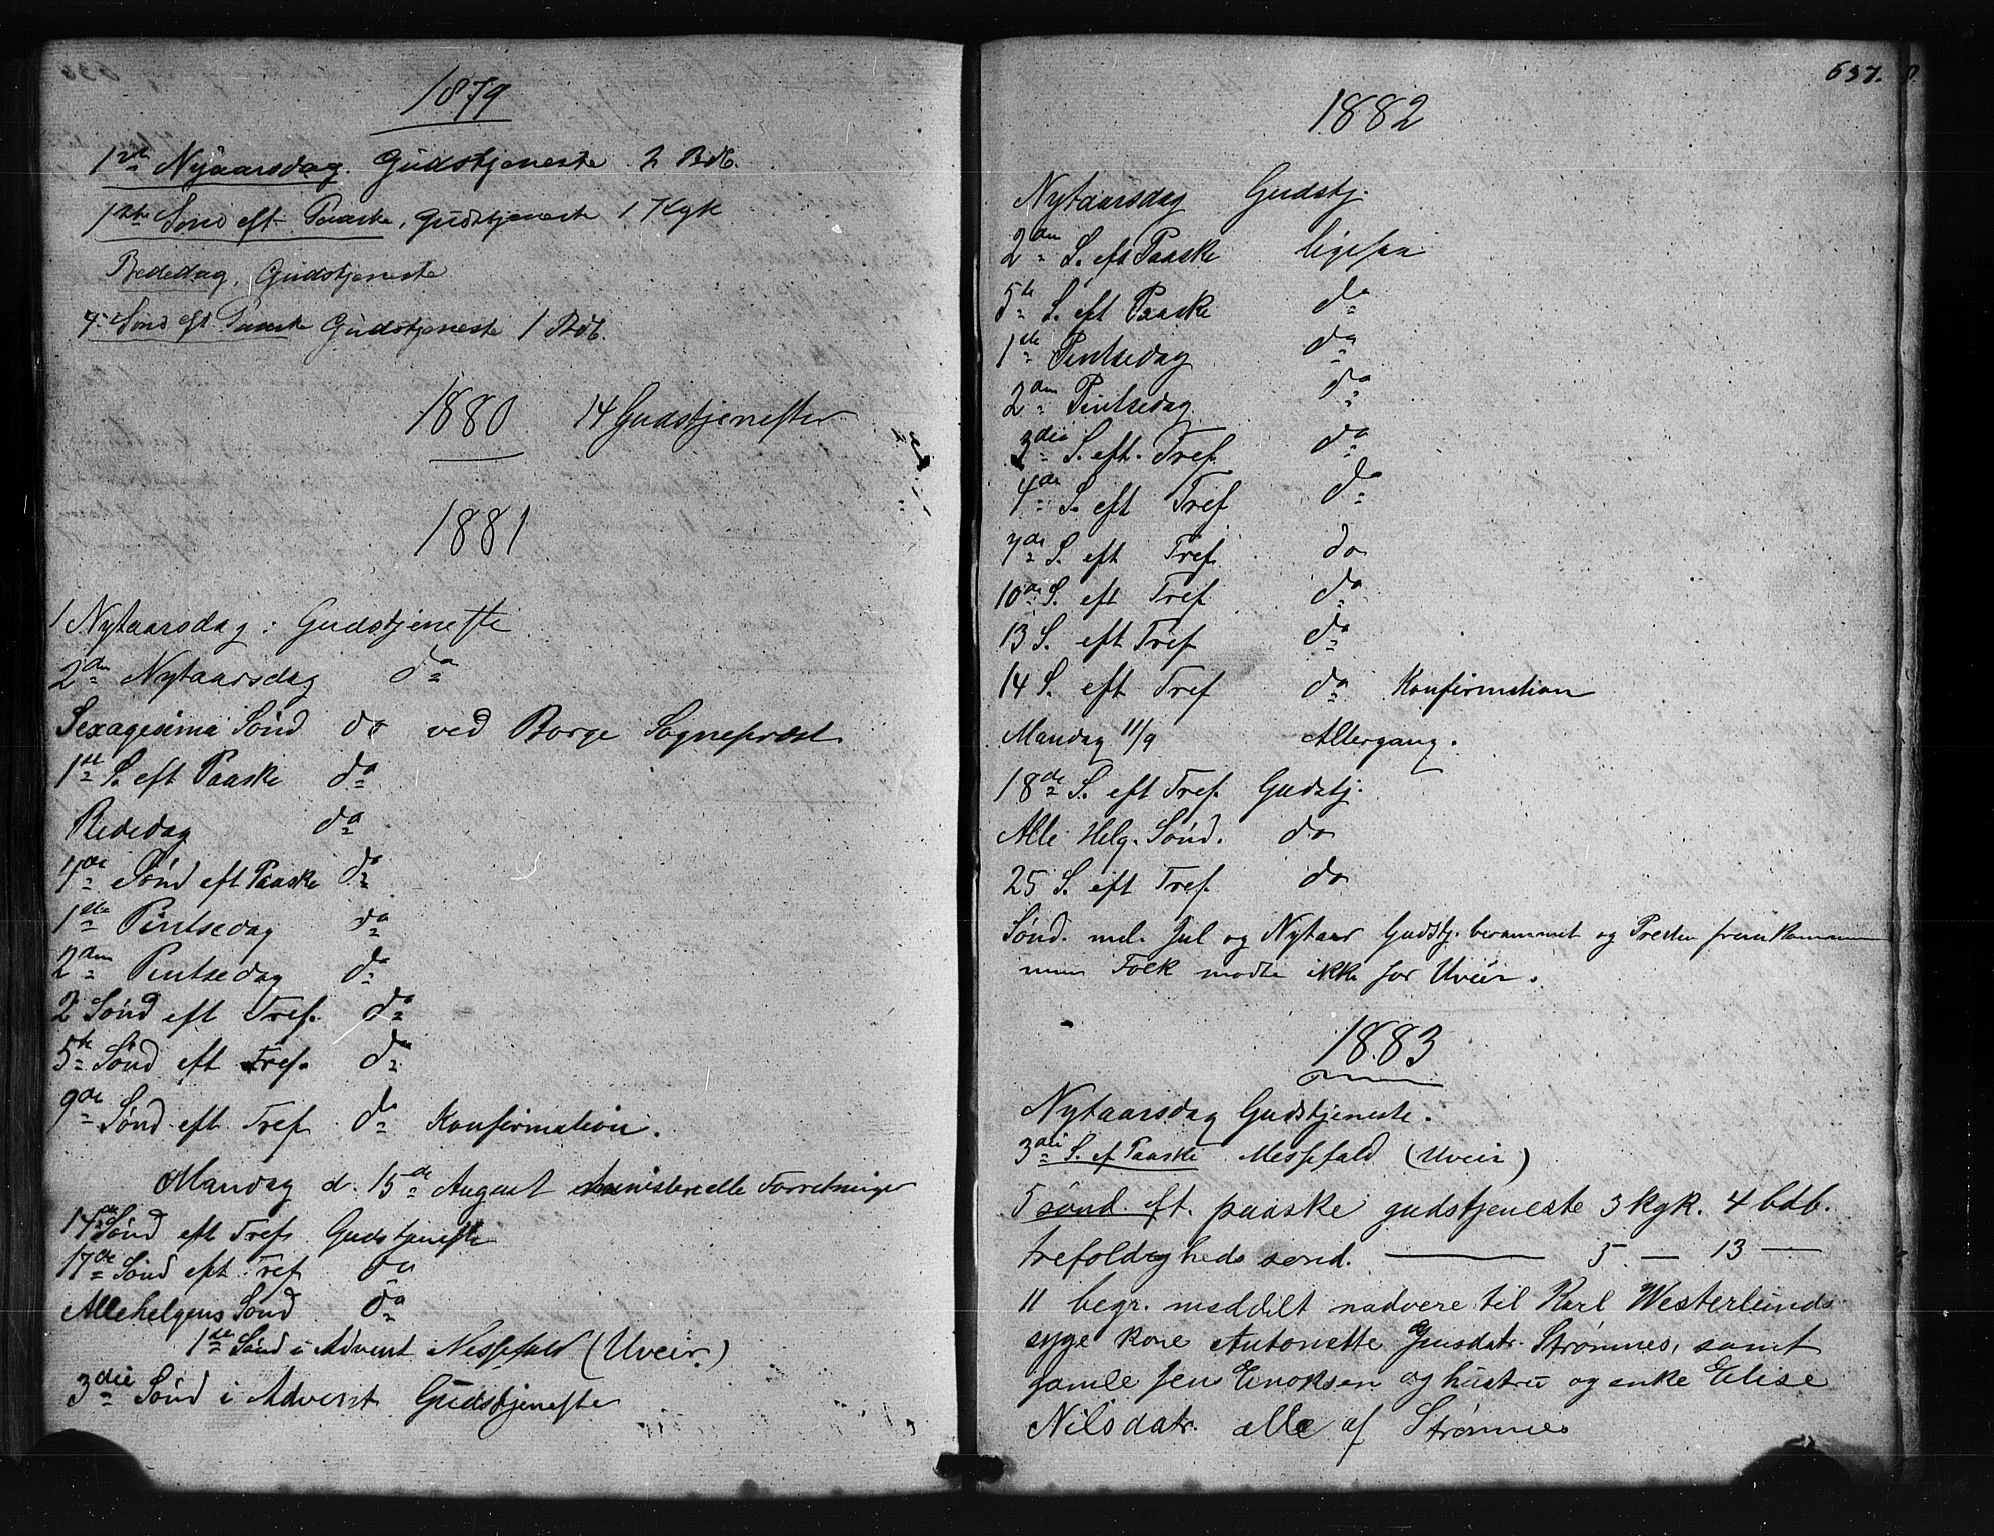 1879
1ste Nyaarsdag. Gudstjeneste 2 Bdb.
1ste Sønd eft Paaske, Gudstjeneste 1 Kgk
Bededag, Gudstjeneste
4. Sønd eft Paaske Gudstjeneste 1 Bdb.
1880 14 Gudstjenester
1881
1 Nytaarsdag: Gudstjeneste
2den Nytaarsdag do
Sexagesima Sønd do ved Borge Sogneprest
1ste S. eft Paaske do
Bededag do
4de Sønd eft Paaske do
1ste Pintsedag do
2den Pintsedag do
2 Sønd eft Tref. do
5te Sønd eft Tref. do
9de Sønd eft Tref do Konfirmation.
Mandag d. 15de August ministerielle Forretninger
14de Sønd eft Tref Gudstjeneste
17de Sønd eft Tref do
Allehelgens Sønd do
1ste Sønd i Advent Messefald (Uveir)
3die Sønd i Advent Gudstjeneste
637.
1882
Nytaarsdag Gudstj.
2den S. eft Paaske ligesaa
5te S. eft Paaske do
1ste Pintsedag do
2den Pintsedag do
3die S. eft. Tref. do
4de S. eft Tref do
7de S. eft Tref. do
10de S. eft Tref do
13 S. eft Tref do
14 S. eft Tref do Konfirmation
Mandag 11/9 Altergang.
18de S. eft Tref. Gudstj.
Alle Helg. Sønd. do
25 S. eft Tref. do
Sønd. mel. Jul og Nytaar Gudstj. berammet og Presten fremkommen
men Folk mødte ikke for Uveir.
1883
Nytaarsdag Gudstjeneste.
3die S. ef Paaske Messefald (Uveir)
5 sønd. eft. paaske gudstjeneste 3 kgk. 4 bdb.
trefoldigheds sønd. — 5 — 13 —
11 begr. meddelt nadvere til Karl Westerlunds
syge kone Antonette Jensdatr. Strømnes, samt
gamle Jens Enoksen og hustru og enke Elise
Nilsdatr. alle af Strømnes